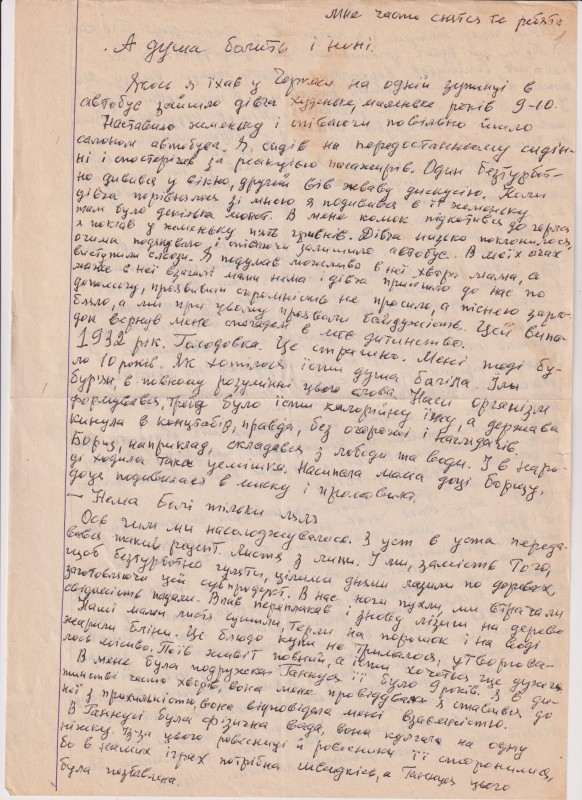 Мне часто снятся те ребята
1
А душа болить і нині.
Якось я їхав у Черкаси на одній зупинці в
автобус зайшло дівча худеньке, маленьке років 9-10.
Наставило жменьку і співаючи повільно йшло
салоном автобуса. Я сидів на передостанньому сидін-
ні і спостерігав за реакцією пасажирів. Один безтурбот-
но дивився у вікно, другий вів жваву дискусію. Коли
дівча порівнялося зі мною я подивився в її жменьку
там було декілька монет. В мене комок підкотився до горла
я поклав у жменьку пять гривнів. Дівча низько поклонилося,
очима подякувало і співаючи залишило автобус. В моїх очах
виступили сльози. Я подумав можливо в неї хвора мама, а
може в неї взагалі мами нема і дівча прийшло до нас по
допомогу, проявивши скромність не просило, а піснею заро-
бляло, а ми при цьому проявили байдужість. Цей випа-
док вернув мене спогадом в моє дитинство.
1932 рік. Голодовка. Це страшно. Мені тоді бу-
ло 10 років. Як хотілося їсти душа бачила. Їли
бурян, в повному розумінні цього слова. Наш організм
формувався, треба було їсти калорійну їжу, а держава
кинула в концтабір, правда, без огорожі і наглядачів
Борщ, наприклад, складався з лободи та води. І в наро-
ді ходила така усмішка. Насипала мама доці борщу,
доця подивилась в миску і промовила.
— Нема Билі тільки ляля
Ось чим ми насолоджувалося. З уст в уста переда-
вався такий рецепт. Листя з липи. І ми, замість того,
щоб безтурботно гуляти, цілими днями лазили по деревах,
заготовляючи цей субпродукт. В нас ноги пухли, ми втрачали
свідомість падали. Впав переплакав і знову лізеш на дерево
Наші мами листя сушили, терли на порошок і на воді
жарили бліни. Це блюдо купи не трималося, утворюва-
лось місиво. Поїв живіт повний, а їсти хочеться ще дужче.
В мене була подружка Ганнуся їй було 9 років. Я в ди-
тинстві часто хворів, вона мене провідувала я ставився до
неї з прихильністю, вона відповідала мені взаємністю.
В Ганнусі була фізична вада, вона кульгала на одну
ніжку. Із-за цього ровесниці й ровесники її сторонилися,
бо в наших іграх потрібна швидкість, а Ганнуся цього
була позбавлена.